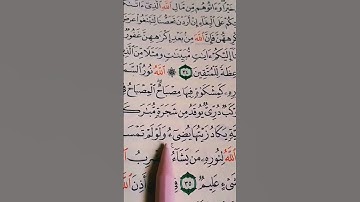 خَيْرًا وَءَاتُوهُم مِّن مَّالِ ٱللَّهِ ٱلَّذِىٓ
عَلَى ٱلْبِغَآءِ إِنْ أَرَدْنَ تَحَصُّنًا لِّتَبْتَغُوا۟ عَرَ
هِهُنَّ فَإِنَّ ٱللَّهَ مِنۢ بَعْدِ إِكْرَٰهِهِنَّ غَفُورٌ
إِلَيْكُمْ ءَايَٰتٍ مُّبَيِّنَٰتٍ وَمَثَلًا مِّنَ
عِظَةً لِّلْمُتَّقِينَ ٣٤ ۞ ٱللَّهُ نُورُ ٱلسَّ
رِهِۦ كَمِشْكَوٰةٍ فِيهَا مِصْبَاحٌ ٱلْمِصْبَاحُ فِى
كَبٌ دُرِّىٌّ يُوقَدُ مِن شَجَرَةٍ مُّبَٰرَكَ
ةٍ يَكَادُ زَيْتُهَا يُضِىٓءُ وَلَوْ لَمْ تَمْسَ
ٱللَّهُ لِنُورِهِۦ مَن يَشَآءُ رِبُ
شَىْءٍ عَلِيمٌ ٣٥ فِى أَذِنَ